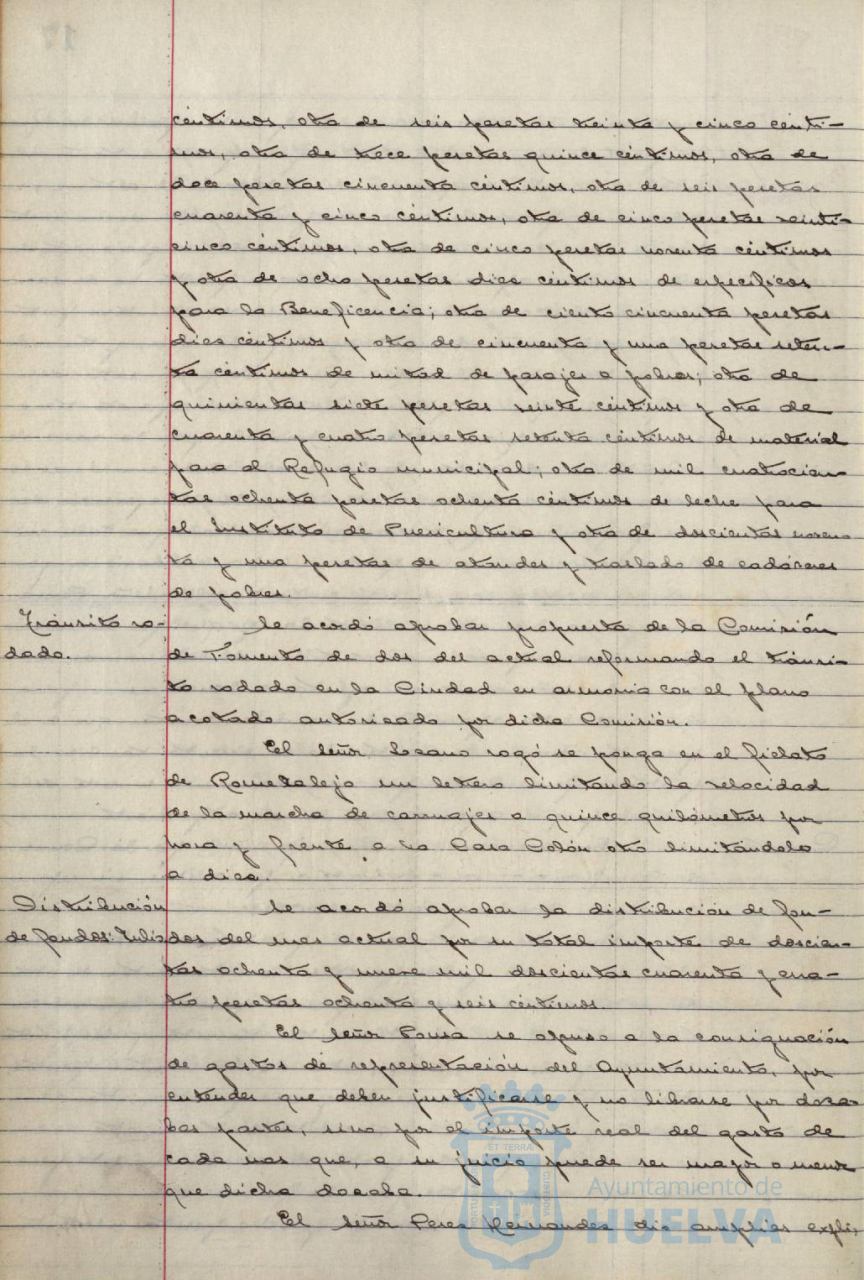 céntimos, otra de seis pesetas treinta y cinco cénti-
mos, otra de trece pesetas quince céntimos, otra de
doce pesetas cincuenta céntimos, otra de seis pesetas
cuarenta y cinco céntimos, otra de cinco pesetas veinti-
cinco céntimos, otra de cinco pesetas noventa céntimos
y otra de ocho pesetas diez céntimos de específicos
para la Beneficencia; otra de ciento cincuenta pesetas
diez céntimos y otra de cincuenta y una pesetas seten-
ta céntimos de mitad de pasajes a pobres; otra de
quinientas siete pesetas veinte céntimos y otra de
cuarenta y cuatro pesetas setenta céntimos de material
para el Refugio municipal; otra de mil cuatrocien-
tas ochenta pesetas ochenta céntimos de leche para
el Instituto de Puericultura y otra de doscientas noven-
ta y una pesetas de ataudes y traslado de cadáveres
de pobres.
Tránsito ro-
dado.
Se acordó aprobar propuesta de la Comisión
de Fomento de dos del actual reformando el tránsi-
to rodado en la Ciudad en armonia con el plano
acotado autorizado por dicha Comisión.
El señor Lozano rogó se ponga en el fielato
de Romeralejo un letrero limitando la velocidad
de la marcha de carruajes a quince quilómetros por
hora y frente a la Casa Colón otro limitándola
a diez.
Distribución
de fondos: Julio
Se acordó aprobar la distribución de fon-
dos del mes actual por su total importe de doscien-
tas ochenta y nueve mil doscientas cuarenta y cua-
tro pesetas ochenta y seis céntimos.
El señor Ponsa se opuso a la consignación
de gastos de representación del Ayuntamiento, por
entender que deben justificarse y no librarse por doza-
bas partes, sino por el importe real del gasto de
cada mes que, a su juicio puede ser mayor o menor
que dicha dozaba.
El señor Perez Hernandez dio amplias expli-
Ayuntamiento de
HUELVA